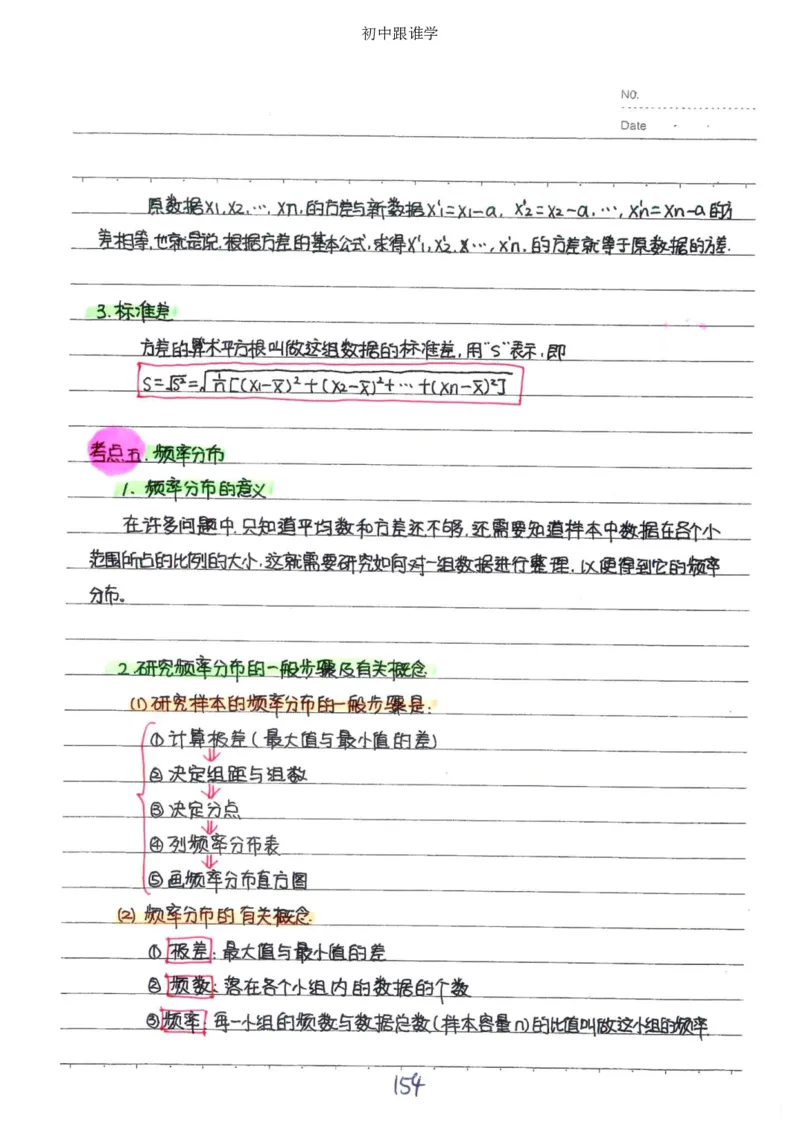 初中跟谁学
NO.
Date
原数据x₁,x₂,…,xn,的方差与新数据x'₁=x₁-a, x'₂=x₂-a,…,x'n=xn-a的方
差相等,也就是说,根据方差的基本公式,求得x'₁,x'₂,x…,x'n,的方差就等于原数据的方差.
3.标准差
方差的算术平方根叫做这组数据的标准差,用"S"表示,即
S=√S²=√1/n[(x₁-x̄)²+(x₂-x̄)²+…+(xn-x̄)²]
考点五.频率分布
1.频率分布的意义
在许多问题中,只知道平均数和方差还不够,还需要知道样本中数据在各个小
范围所占的比例的大小,这就需要研究如何对一组数据进行整理,以便得到它的频率
分布。
2.研究频率分布的一般步骤及有关概念
(1)研究样本的频率分布的一般步骤是:
①计算极差(最大值与最小值的差)
②决定组距与组数
③决定分点
④列频率分布表
⑤画频率分布直方图
(2)频率分布的有关概念
①极差:最大值与最小值的差
②频数:落在各个小组内的数据的个数
③频率:再一小组的频数与数据总数(样本容量n)的比值叫做这小组的频率.
154